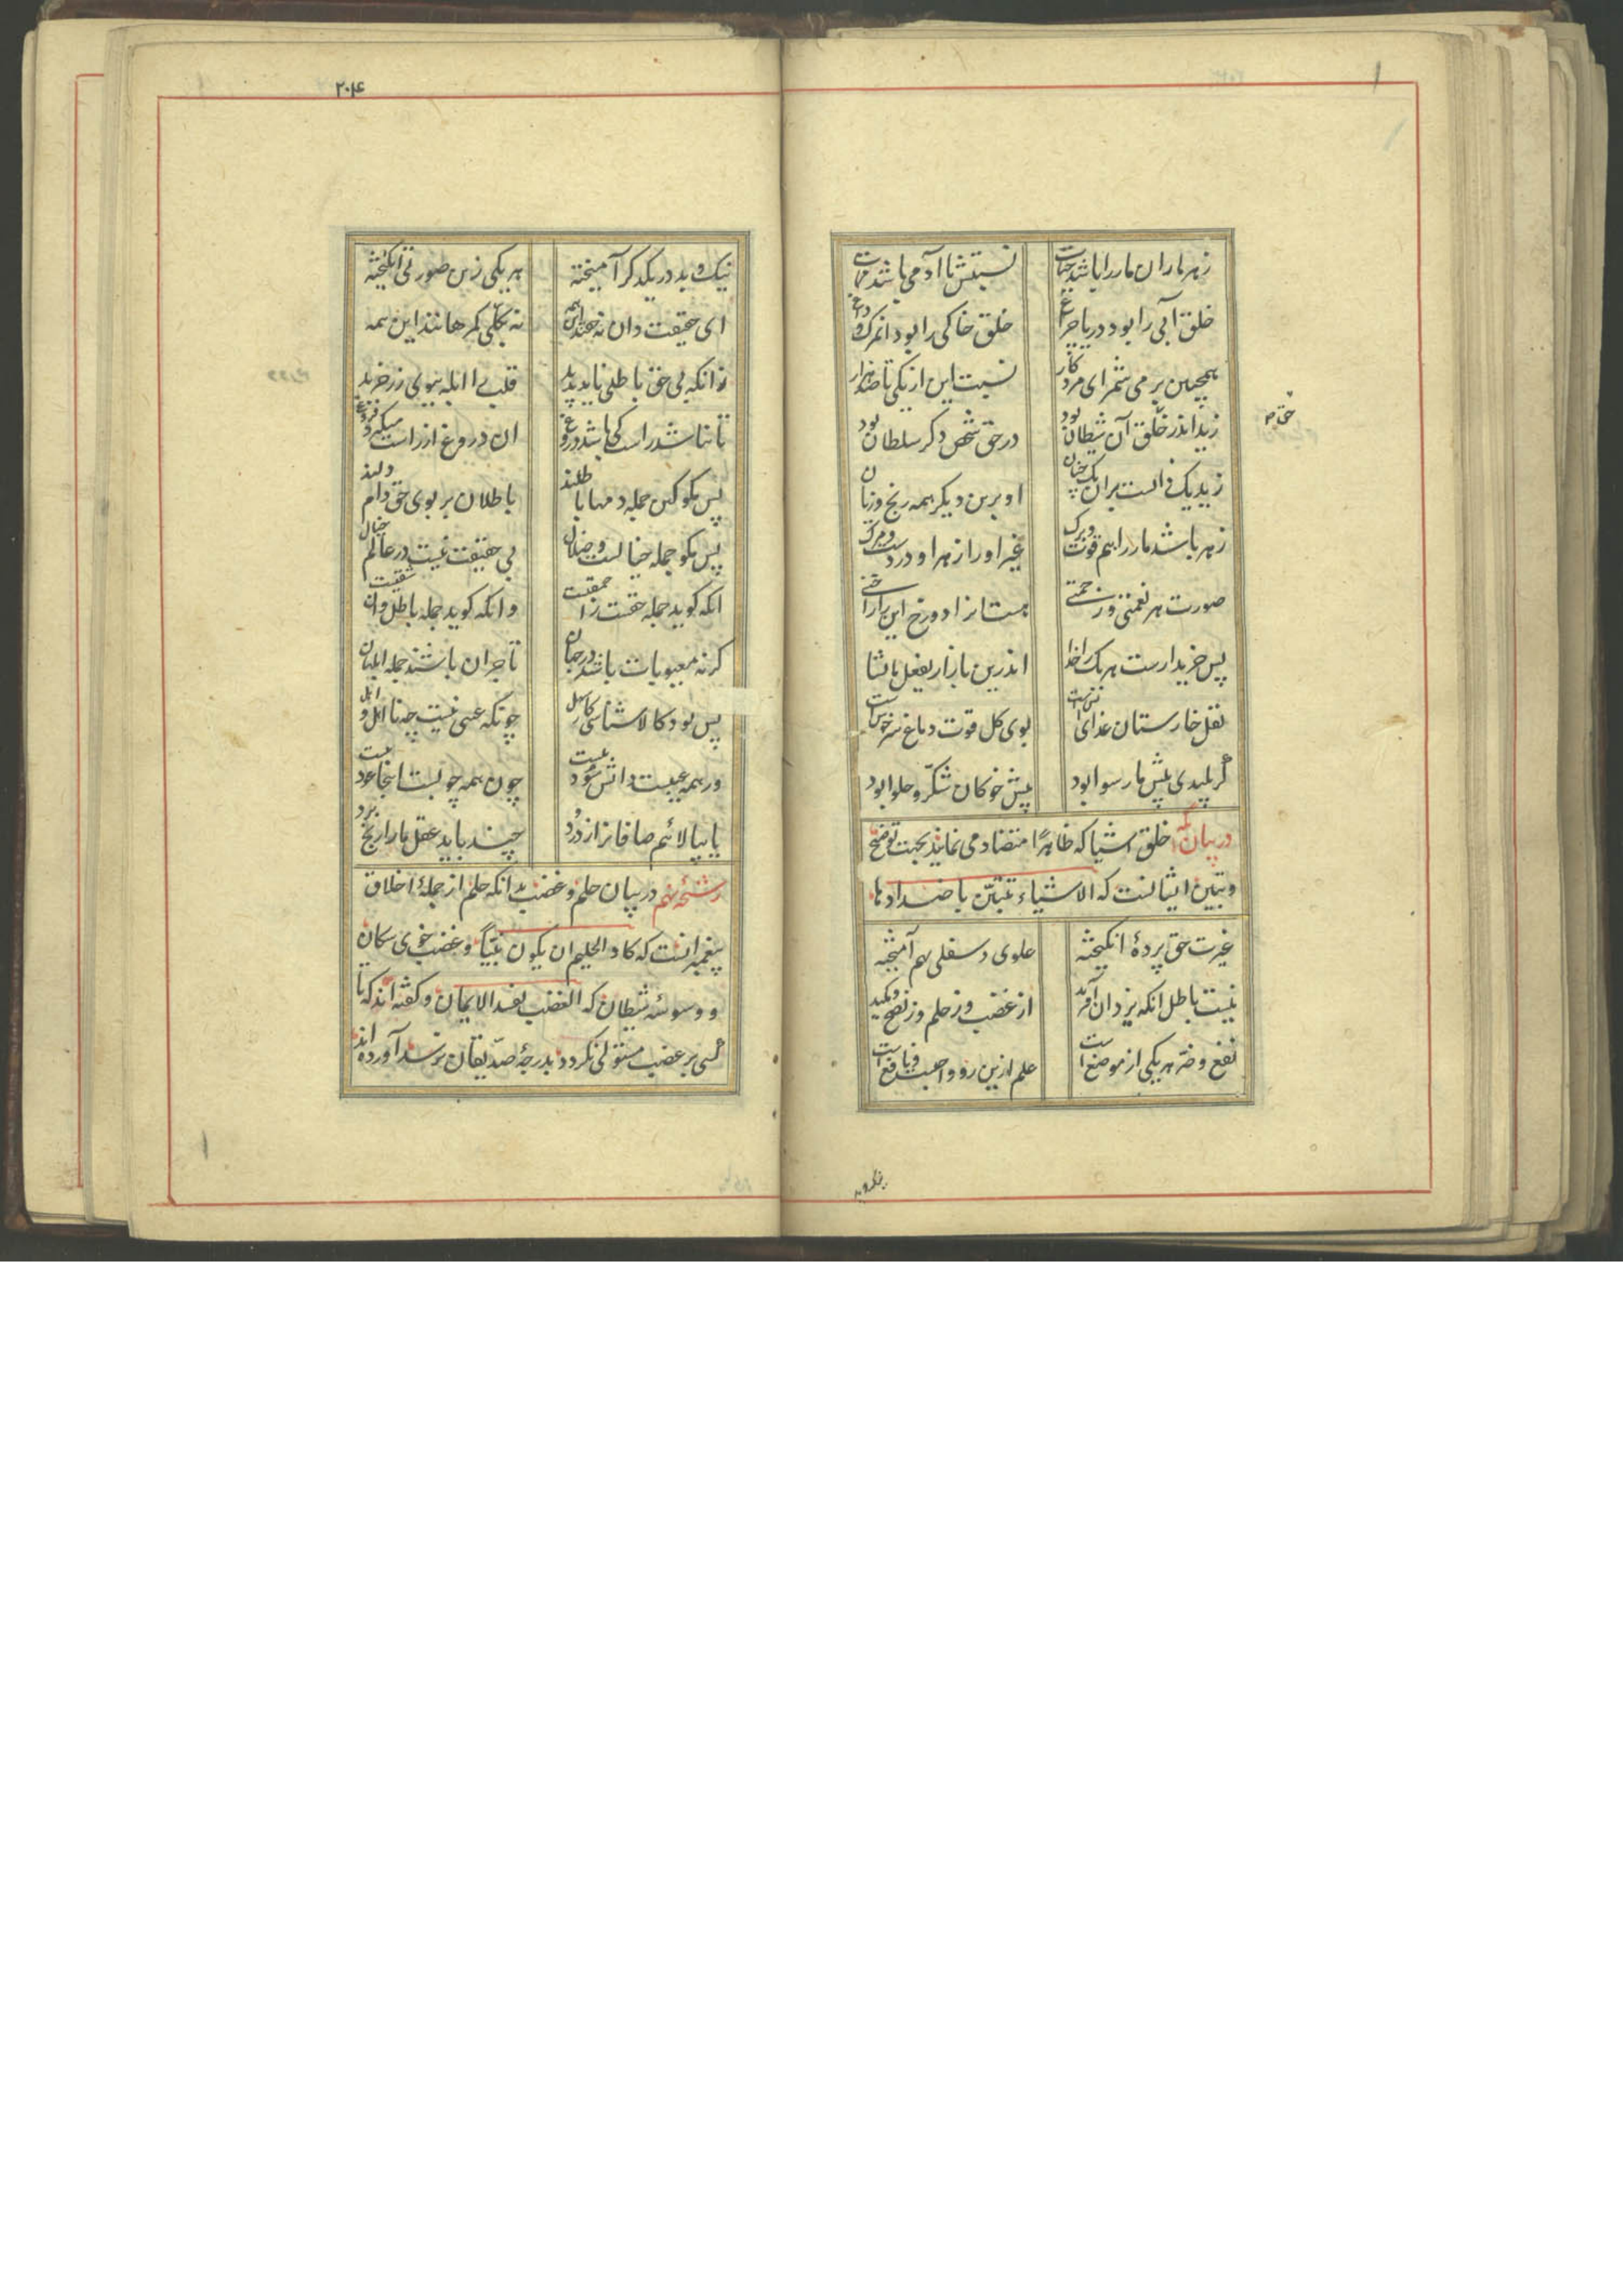 زهر ماران مار را باشد حیات نسبتش با آدمی باشد ممات
خلق آبی را بود دریا چو باغ خلق خاکی را بود آن مرگ و داغ
همچنین بر می شمر ای مرد کار نسبت این از یکی تا صد هزار
زید اندر حق آن شیطان بود در حق شخص دگر سلطان بود
حق م
زید یک ذاتست بر آن یک جنان او برین دیگر همه رنج و زیان
زهر باشد مار را هم قوت و برگ غیر او را زهر او دردست و مرگ
صورت هر نعمتی و زحمتی هست آنرا دوزخ این را جنتی
پس خریدارست هر یک را خدا اندرین بازار یفعل ما یشا
نقل خارستان غذای آتش است بوی گل قوت دماغ سرخوش است
گر پلیدی پیش ما رسوا بود پیش خوکان شکر و حلوا بود
در بیان آنکه خلق اشیا که ظاهرًا متضاد می نمایند بجهت توضیح
و تبیین ایشانست که الاشیاء تتبیّن باضدادها
غیرت حق پردهٔ انگیخته علوی و سفلی بهم آمیخته
نیست باطل آنکه یزدان آفرید از غضب وز حلم وز نصح و مکید
نفع و ضر هر یکی از موضع است علم ازین رو واجبست و نافع است
نیک و بد
۲۰۴
نیک و بد در یکدگر آمیخته هر یکی زین صورتی انگیخته
ای حقیقت دان نه حقند این همه نه بکلی گمرهانند این همه
زانکه بی حق باطلی ناید پدید قلب را ابله ببوی زر خرید
تا نباشد راست کی باشد دروغ آن دروغ از راست میگیرد فروغ
پس مگو کین جمله دمها باطلند باطلان بر بوی حق دام دلند
پس مگو جمله خیالست و ضلال بی حقیقت نیست در عالم خیال
آنکه گوید جمله حقست از احمقیست وانکه گوید جمله باطل او شقیست
گر نه معیوبات باشد در جهان تاجران باشند جمله ابلهان
پس بود کالا شناسی کار سهل چونکه عیبی نیست چه نااهل و اهل
ور همه عیبست دانش سود نیست چون همه چوبست اینجا عود نیست
یا بپالائیم صافانرا ز درد چند باید عقل ما را رنج برد
رشحهٔ نهم در بیان حلم و غضب بدانکه حلم از جملهٔ اخلاق
پیغمبرانست که کاد الحلیم ان یکون نبیًّا و غضب خوی سگان
و وسوسهٔ شیطان که الغضب یفسد الایمان و گفته اند که تا
کسی بر غضب مستولی نگردد بدرجهٔ صدّیقان نرسد آورده اند